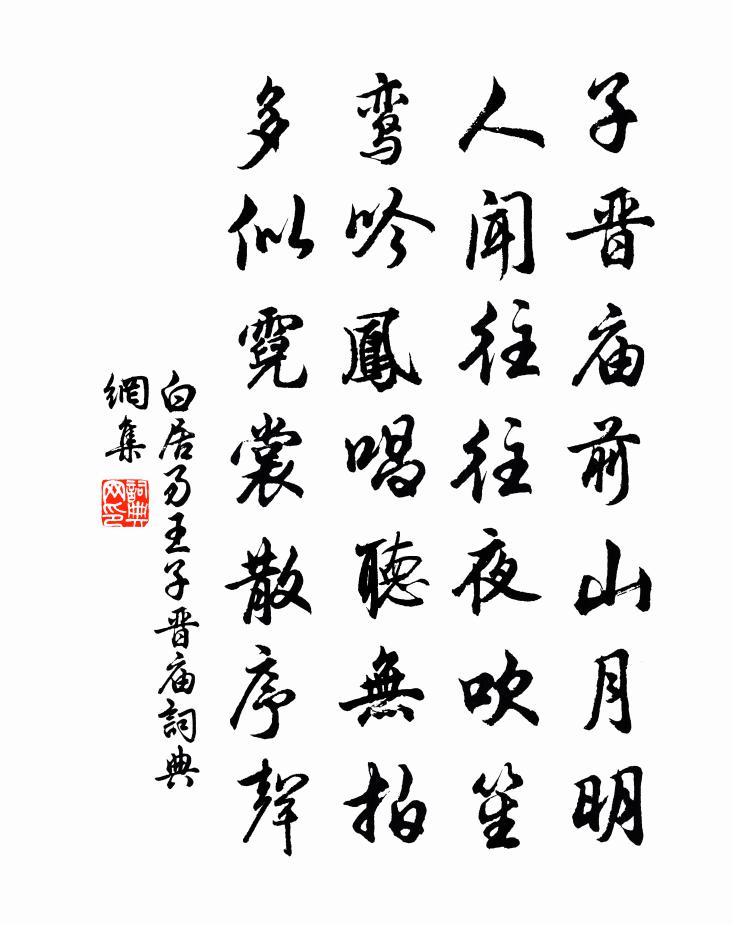 子晋庙前山月明
人闻往往夜吹笙
鸾吟鳳唱聽無拍
多似霓裳散序聲
白居易王子晋庙詞典
網集
詞典
网印